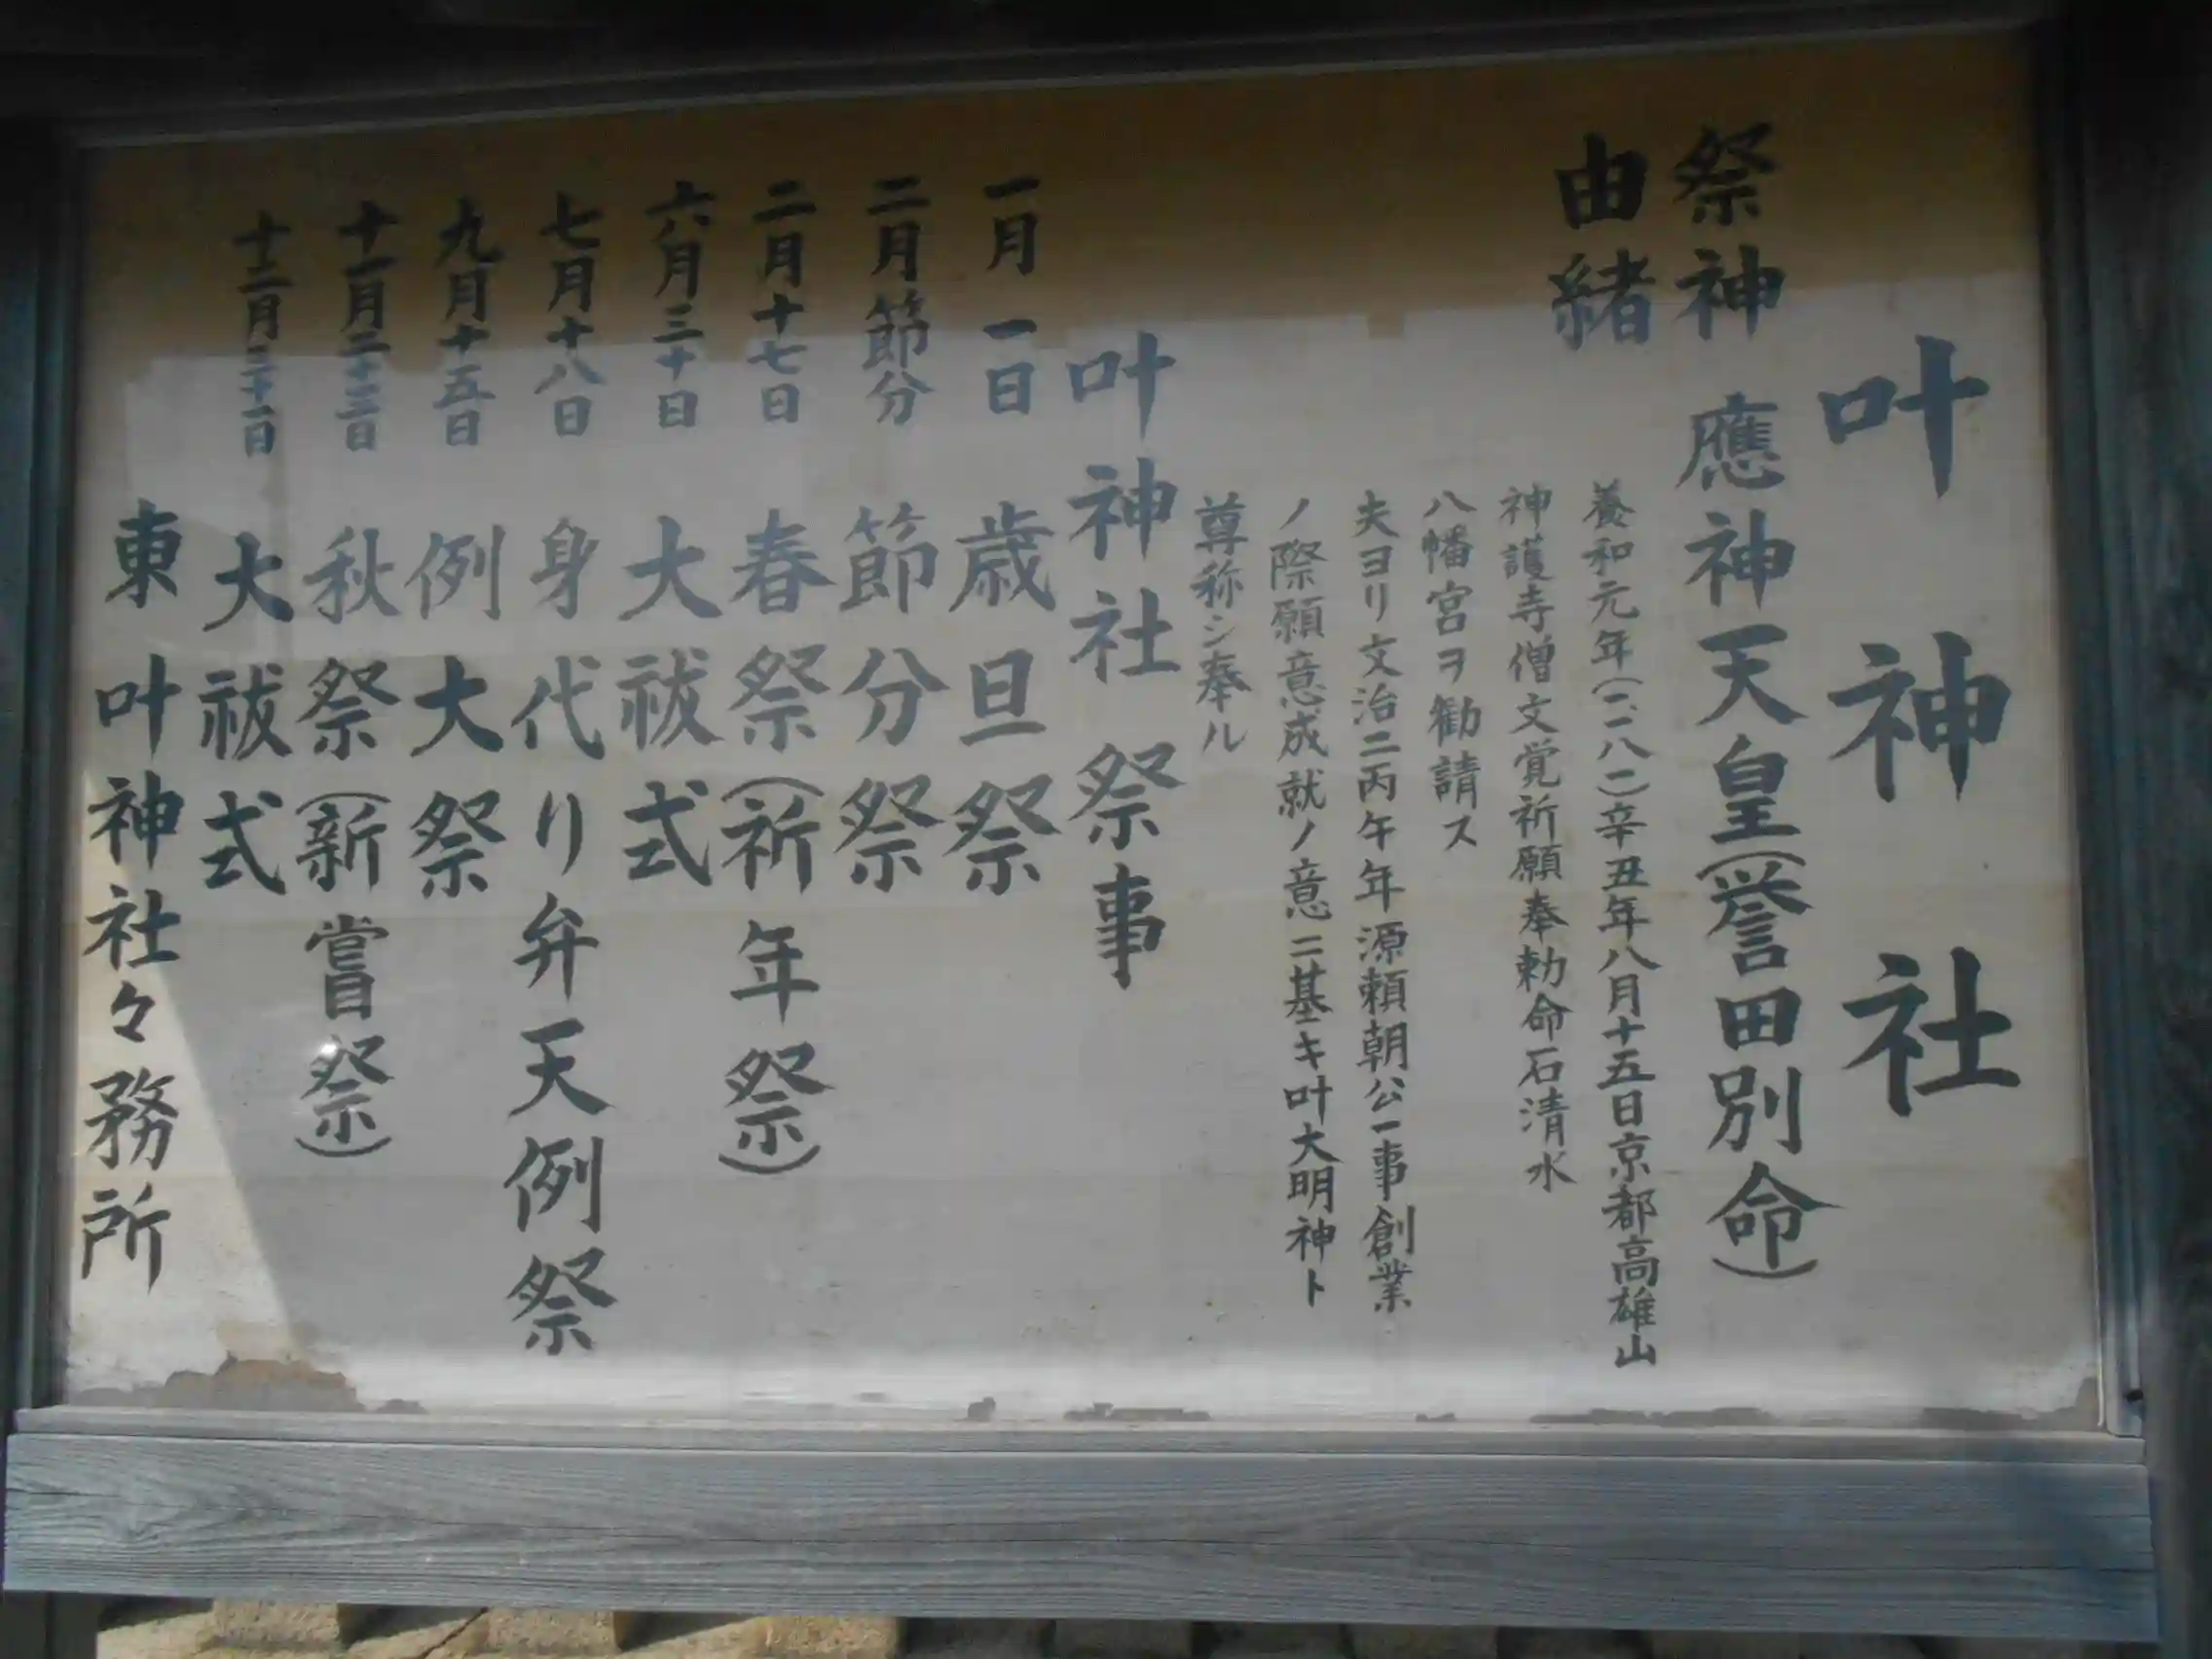 叶神社
祭神 應神天皇(誉田別命)
由緒
養和元年(一一八一)辛丑年八月十五日京都高雄山
神護寺僧文覚祈願奉勅命石清水
八幡宮ヲ勧請ス
夫ヨリ文治二丙午年源頼朝公一事創業
ノ際願意成就ノ意ニ基キ叶大明神ト
尊称シ奉ル
叶神社祭事
一月一日 歳旦祭
二月節分 節分祭
二月十七日 春祭(祈年祭)
六月三十日 大祓式
七月十八日 身代り弁天例祭
九月十五日 例大祭
十一月二十三日 秋祭(新嘗祭)
十二月三十一日 大祓式
東叶神社々務所